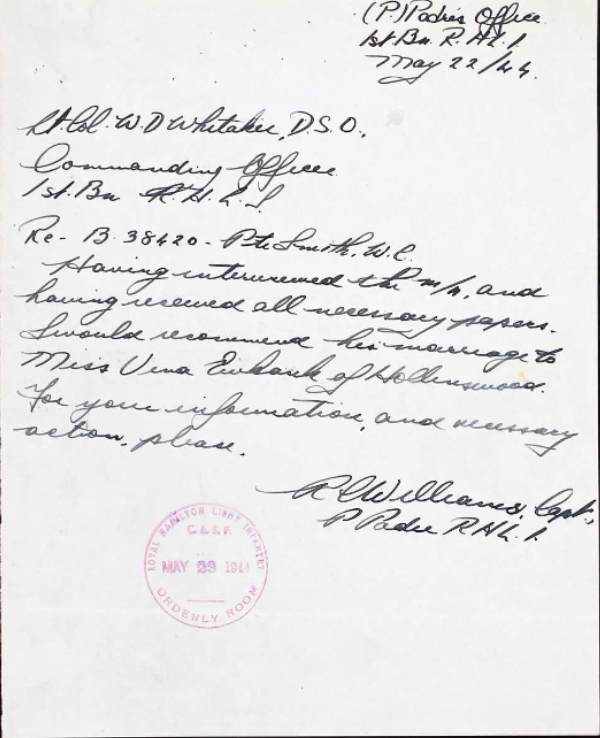 (P.) Padre's Office
1st Bn. R.H.L.I.
May 22/44.
Lt. Col. W. D Whitaker, D.S.O.,
Commanding Officer
1st. Bn R.H.L.I
Re - B. 38420 - Pte Smith, W.C.
Having interviewed the m/n, and
having received all necessary papers.
I would recommend his marriage to
Miss Vina Ewbank of Hollinswood.
For your information, and necessary
action, please.
Williams, Capt.,
P Padre R H L.I.
ROYAL HAMILTON LIGHT INFANTRY
C.A.S.F.
MAY 23 1944
ORDERLY ROOM